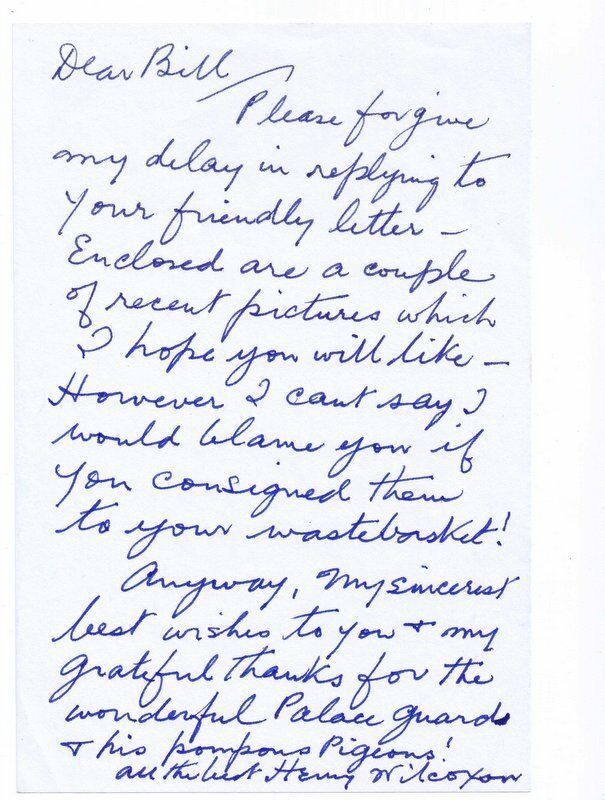 Dear Bill
Please forgive
my delay in replying to
your friendly letter –
Enclosed are a couple
of recent pictures which
I hope you will like –
However I cant say I
would blame you if
you consigned them
to your wastebasket!
Anyway, my sincerest
best wishes to you + my
grateful thanks for the
wonderful Palace Guard
+ his pompous Pigeons!
all the best Henry Wilcoxon